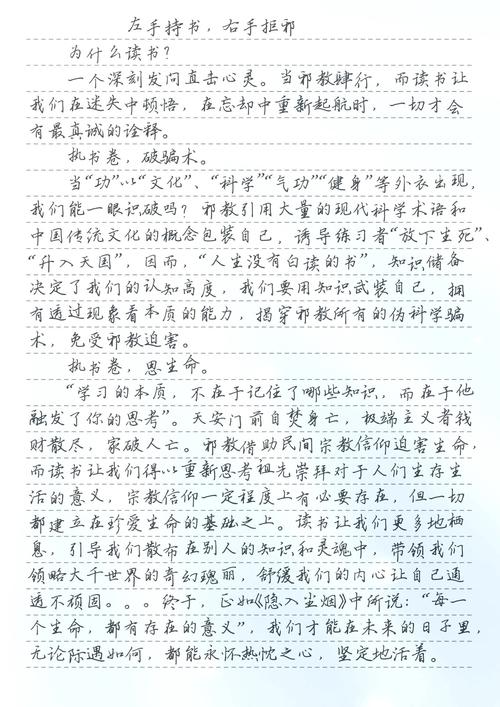 左手持书，右手拒邪
为什么读书？
一个深刻发问直击心灵。当邪教肆行，而读书让
我们在迷失中顿悟，在忘却中重新起航时，一切才会
有最真诚的诠释。
执书卷，破骗术。
当“功”以“文化”、“科学”“气功”“健身”等外衣出现，
我们能一眼识破吗？邪教引用大量的现代科学术语和
中国传统文化的概念包装自己，诱导练习者“放下生死”、
“升入天国”，因而，“人生没有白读的书”，知识储备
决定了我们的认知高度，我们要用知识武装自己，拥
有透过现象看本质的能力，揭穿邪教所有的伪科学骗
术，免受邪教迫害。
执书卷，思生命。
“学习的本质，不在于记住了哪些知识，而在于他
触发了你的思考”。天安门前自焚身亡，极端主义者钱
财散尽，家破人亡。邪教借助民间宗教信仰迫害生命，
而读书让我们得以重新思考祖先崇拜对于人们生存生
活的意义，宗教信仰一定程度上有必要存在，但一切
都建立在珍爱生命的基础之上。读书让我们更多地栖
息，引导我们散布在别人的知识和灵魂中，带领我们
领略大千世界的奇幻瑰丽，舒缓我们的内心让自己通
透不顽固。。。终于，正如《隐入尘烟》中所说：“每一
个生命，都有存在的意义”，我们才能在未来的日子里，
无论际遇如何，都能永怀热忱之心，坚定地活着。